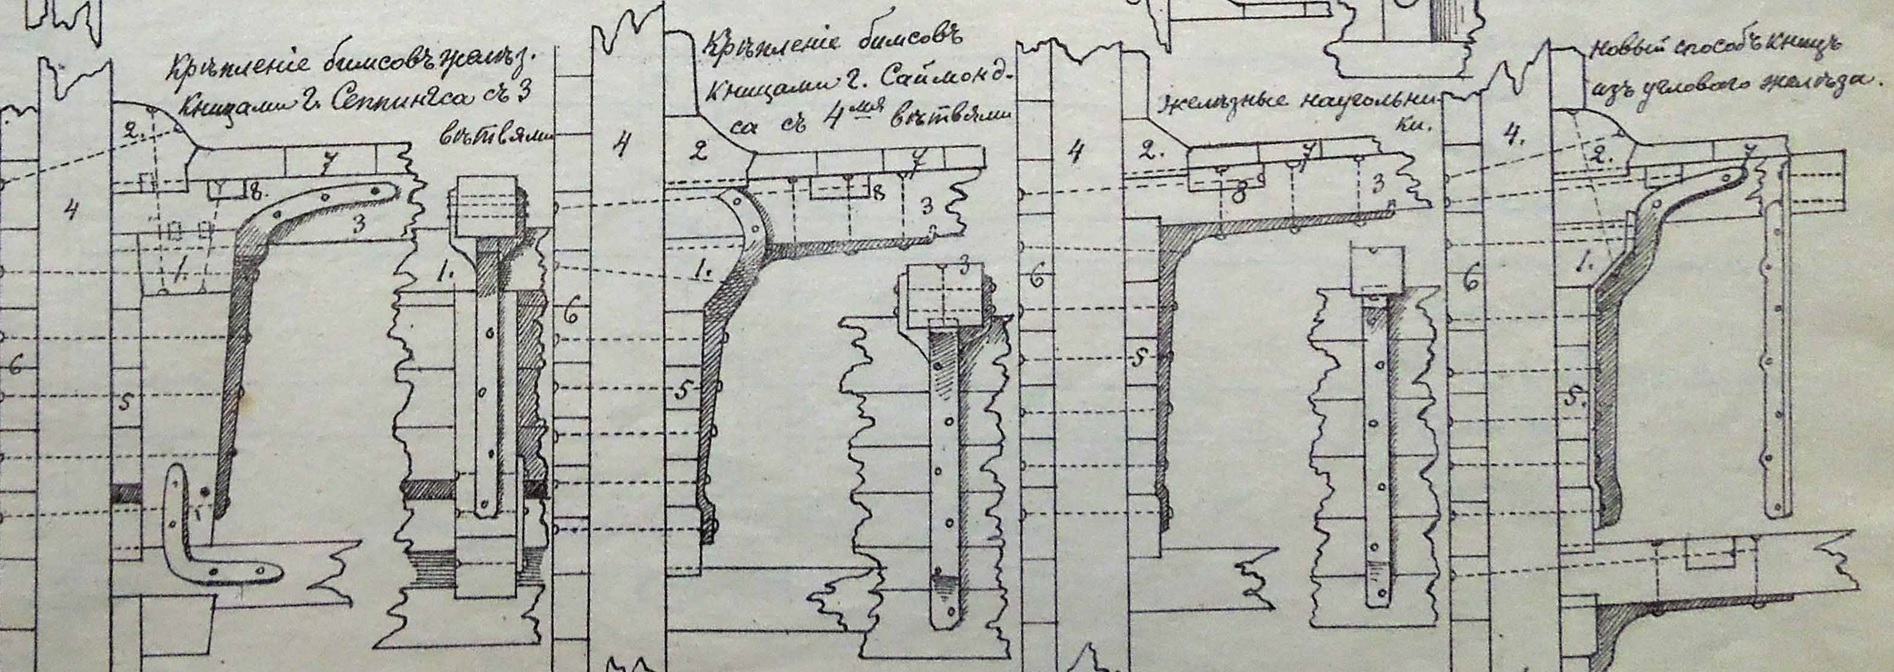 Крѣпленіе бимсовъ желѣз.
Кницами г. Сеппингса съ 3
вѣтвями
Крѣпленіе бимсовъ
Кницами г. Саймонд-
са съ 4мя вѣтвями
Желѣзные наугольни-
ки.
Новый способъ кницъ
изъ угловаго желѣза.
2.
7
8.
3
4
1.
6
5
1.
4
2
7
8
3
1.
6
5
3
4
2.
7
8
3
6
5
4.
2.
7
1.
6
5.